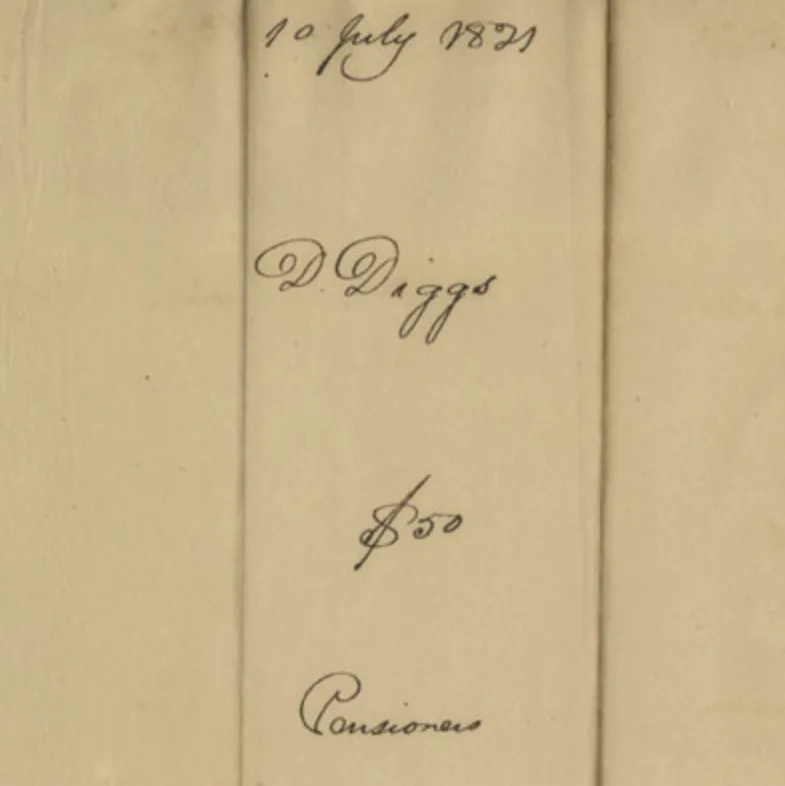 10 July 1821
D. Diggs
$50
Pensioners